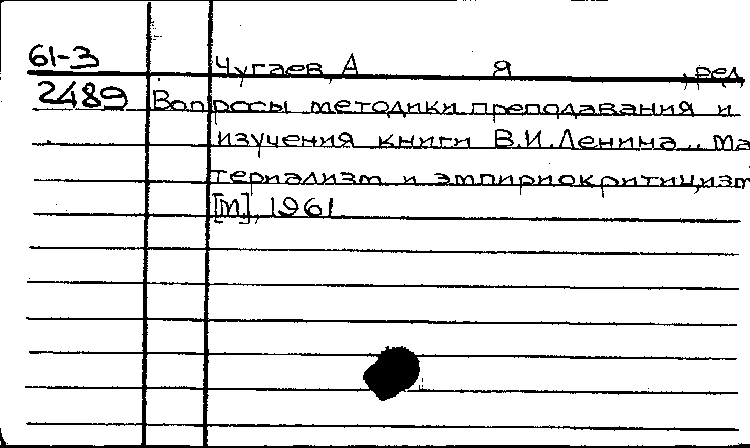 61-3 Чугаев, А Я , ред.
2489 Вопросы методики преподавания и
изучения книги В.И.Ленина „Ма
териализм и эмпириокритицизм
[М], 1961